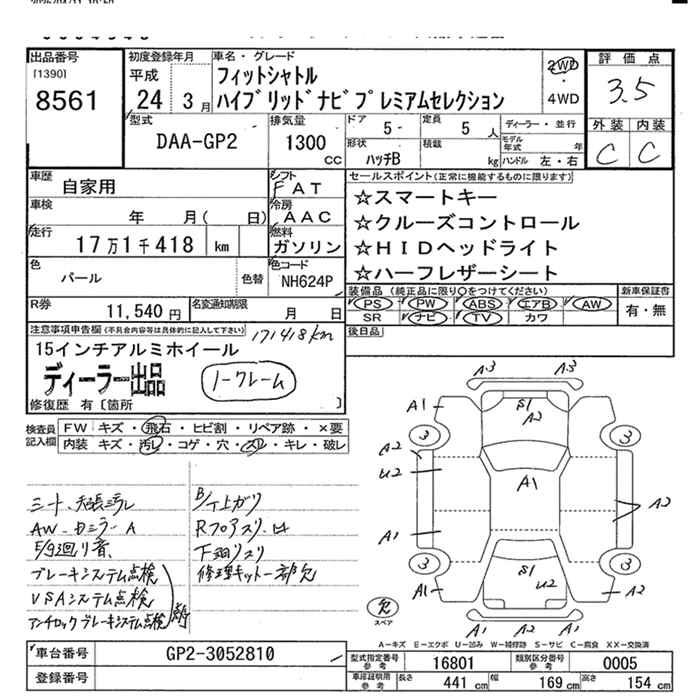 出品番号
[1390]
8561
初度登録年月
平成
24 3月
車名・グレード
フィットシャトル
ハイブリッドナビプレミアムセレクション
2WD
4WD
評価点
3.5
外装 内装
C C
型式
DAA-GP2
排気量
1300
cc
ドア
5
定員
5 人
形状
ハッチB
積載
kg
ディーラー・並行
モデル年式 年
ハンドル 左・右
車歴
自家用
シフト
FAT
車検
年 月( 日)
冷房
AAC
走行
17万1千418 km
燃料
ガソリン
色
パール
色替
色コード
NH624P
R券
11,540 円
名変通知期限
月 日
セールスポイント(正常に機能するものに限ります)
☆スマートキー
☆クルーズコントロール
☆HIDヘッドライト
☆ハーフレザーシート
装備品 (純正品に限り○をつけてください)
PS PW ABS エアB AW
SR ナビ TV カワ
新車保証書
有・無
後日品
注意事項申告欄(不具合内容等は具体的に記入して下さい)
171418km
15インチアルミホイール
ディーラー出品
ノークレーム
修復歴 有〔箇所 〕
検査員記入欄
FW キズ・飛石・ヒビ割・リペア跡・×要
内装 キズ・汚レ・コゲ・穴・スレ・キレ・破レ
AW
ブレーキシステム点検
VSAシステム点検
アンチロックブレーキシステム点検
下廻リスリ
修理キット一部欠
A3 A3
A1 S1 A2
3 3
A2
U2 A1
A3
A1
3 3
S1 U2
A1 A2
A1 A2
欠
スペア
A-キズ E-エクボ U-凹み W-補修跡 S-サビ C-腐食 XX-交換済
車台番号
GP2-3052810
登録番号
型式指定番号参考
16801
類別区分番号参考
0005
車庫証明用参考
長さ 441 cm
幅 169 cm
高さ 154 cm